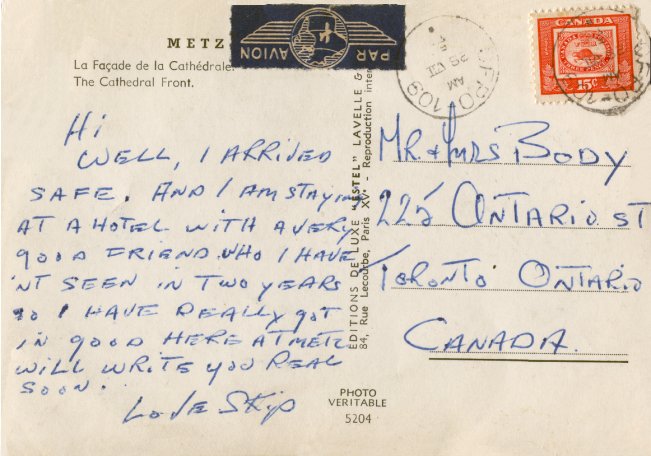 METZ
La Façade de la Cathédrale.
The Cathedral Front.
PAR AVION
CANADA
15¢
109
AM
Hi
WELL, I ARRIVED
SAFE. AND I AM STAYING
AT A HOTEL WITH A VERY
GOOD FRIEND WHO I HAVE
'NT SEEN IN TWO YEARS
SO I HAVE REALLY GOT
IN GOOD HERE AT METZ
WILL WRITE YOU REAL
SOON.
LOVE SKIP
EDITIONS DE LUXE "ESTEL" LAVELLE &
84, Rue Lecourbe, Paris XV - Reproduction inter
MR & MRS BODY
225 ONTARIO ST
TORONTO ONTARIO
CANADA.
PHOTO
VERITABLE
5204